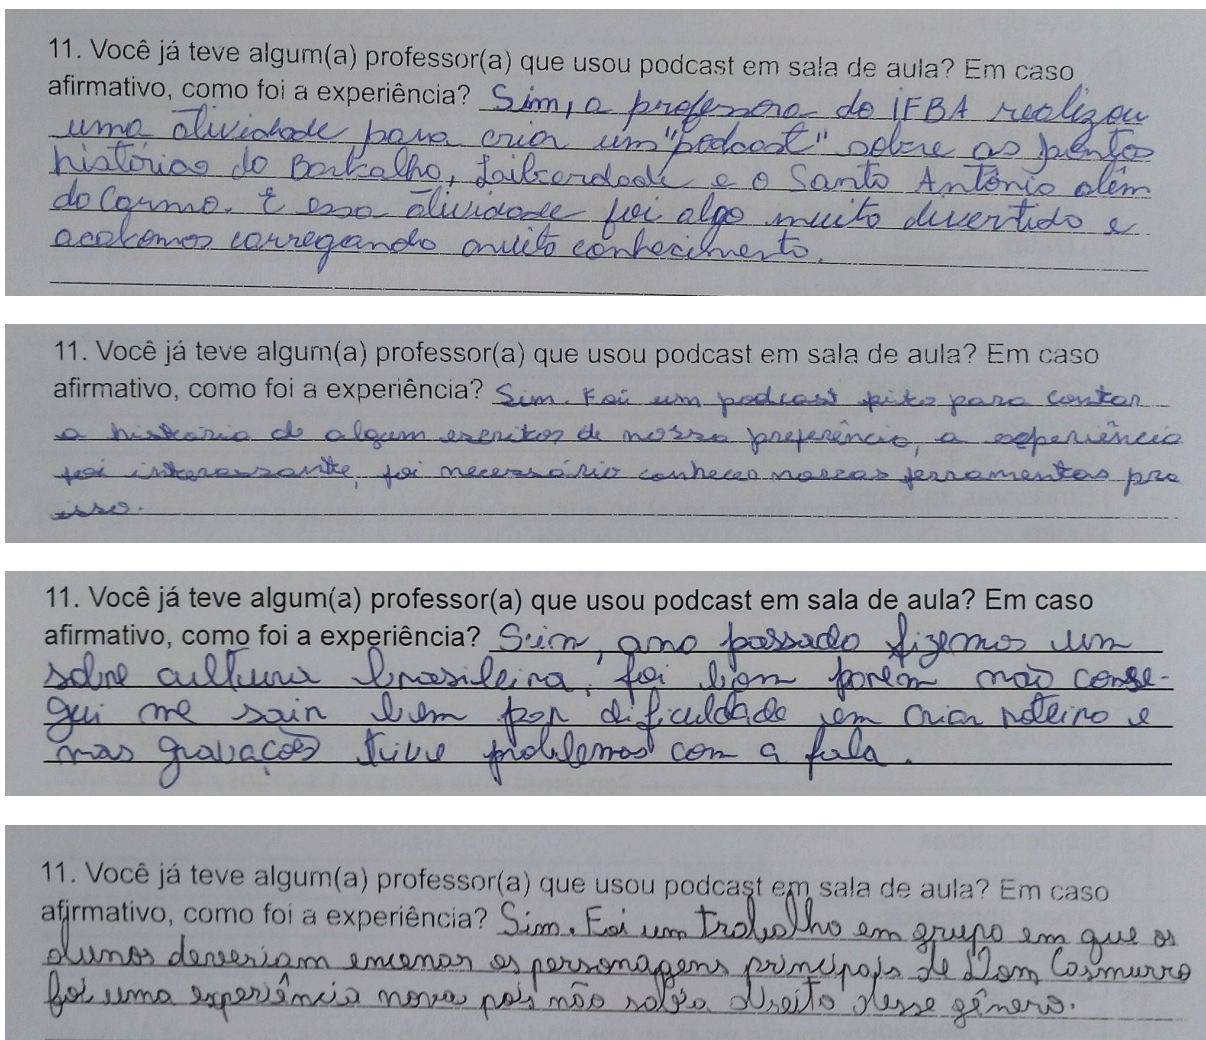 11. Você já teve algum(a) professor(a) que usou podcast em sala de aula? Em caso
afirmativo, como foi a experiência? Sim, a professora do IFBA realizou
uma atividade para criar um "podcast" sobre os pontos
histórios do Barbalho, Laiberdade e o Santo Antônio além
do Carmo. E essa atividade foi algo muito divertido e
acabamos carregando muito conhecimento.
11. Você já teve algum(a) professor(a) que usou podcast em sala de aula? Em caso
afirmativo, como foi a experiência? Sim. Foi um podcast feito para contar
a história de algum escritor de nossa preferência, a experiência
foi interessante, foi necessário conhecer nossas ferramentas pra
isso.
11. Você já teve algum(a) professor(a) que usou podcast em sala de aula? Em caso
afirmativo, como foi a experiência? Sim, ano passado fizemos um
sobre cultura brasileira, foi bom porém não conse-
gui me sair bem por dificuldade em criar roteiro e
nas gravações tive problemas com a fala.
11. Você já teve algum(a) professor(a) que usou podcast em sala de aula? Em caso
afirmativo, como foi a experiência? Sim. Foi um trabalho em grupo em que os
alunos deveriam encenar os personagens principais de Dom Casmurro
foi uma experiência nova pois não sabia direito desse gênero.